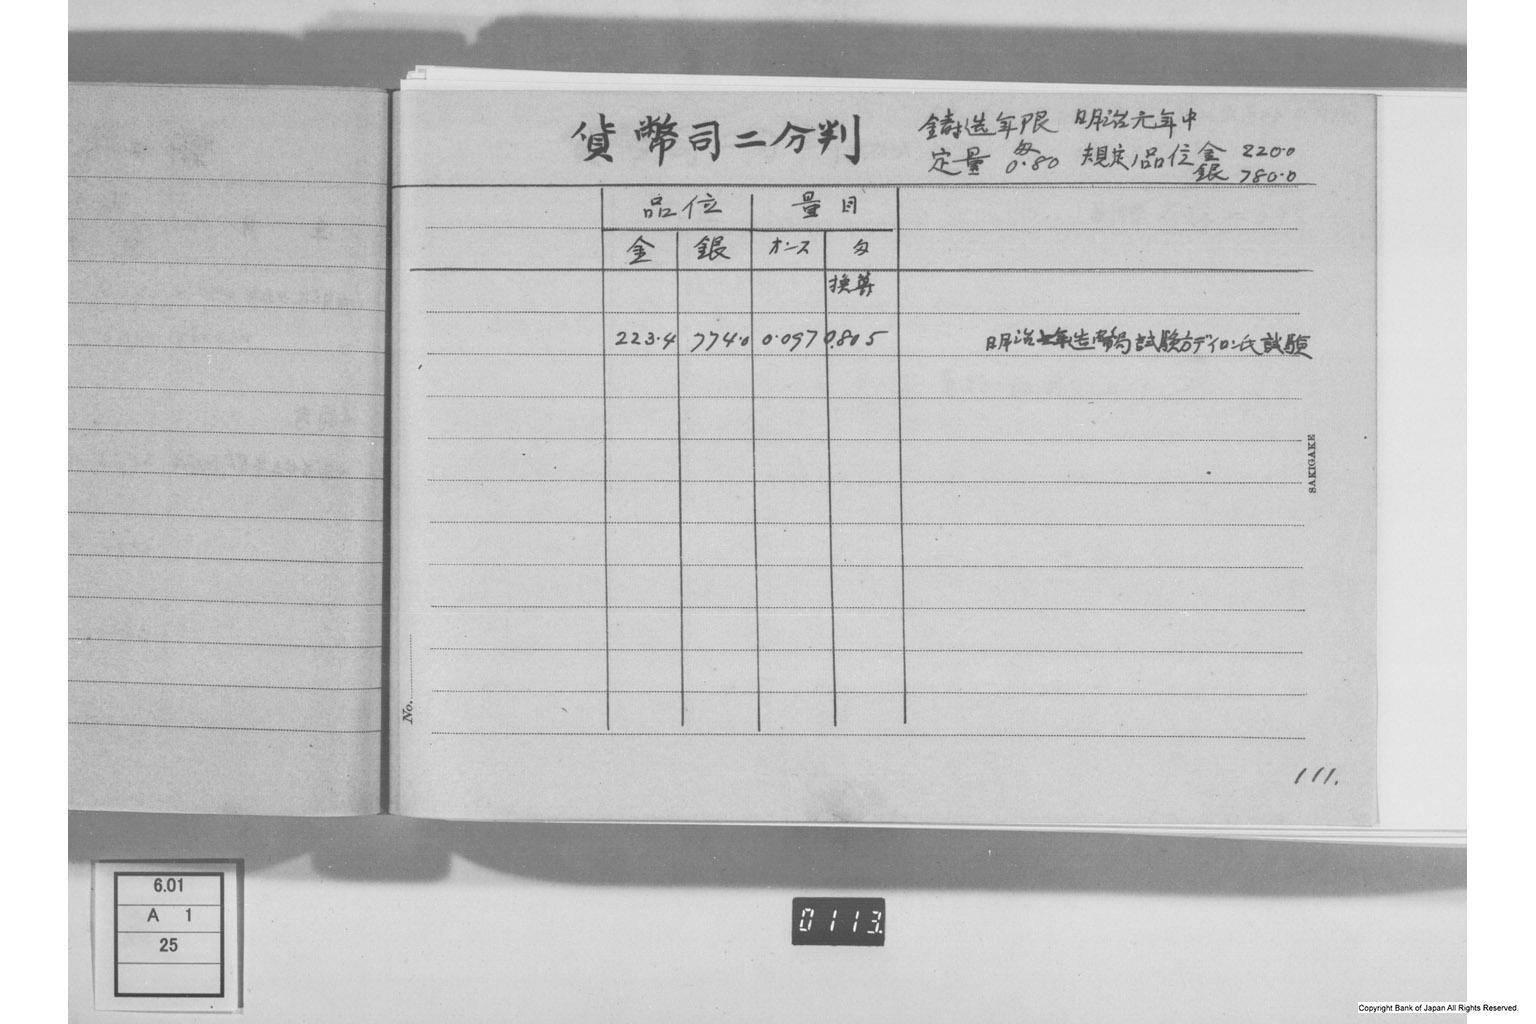 貨幣司二分判
鋳造年限 明治元年中
定量 匁0.80 規定ノ品位 金 220.0
銀 780.0
品位 量目
金 銀 オンス 匁
換算
223.4 774.0 0.097 0.805 明治七年造幣局試験方ディロン氏試験
SAKIGAKE
No.
111.
6.01
A 1
25
0113.
Copyright Bank of Japan All Rights Reserved.